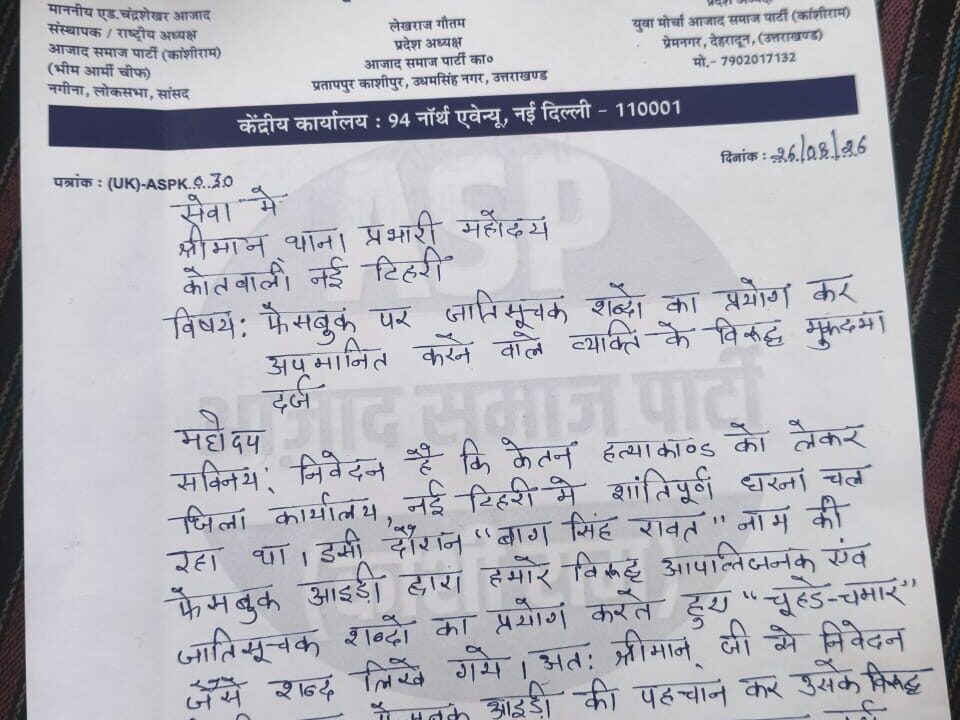 माननीय एड.चंद्रशेखर आजाद
संस्थापक / राष्ट्रीय अध्यक्ष
आजाद समाज पार्टी (कांशीराम)
(भीम आर्मी चीफ)
नगीना, लोकसभा, सांसद
लेखराज गौतम
प्रदेश अध्यक्ष
आजाद समाज पार्टी का०
प्रतापपुर काशीपुर, उधमसिंह नगर, उत्तराखण्ड
प्रदेश अध्यक्ष
युवा मोर्चा आजाद समाज पार्टी (कांशीराम)
प्रेमनगर, देहरादून, (उत्तराखण्ड)
मो.- 7902017132
केंद्रीय कार्यालय : 94 नॉर्थ एवेन्यू, नई दिल्ली - 110001
पत्रांक : (UK)-ASPK
दिनांक : 26/08/26
सेवा में
श्रीमान थाना प्रभारी महोदय
कोतवाली नई टिहरी
विषय: फेसबुक पर जातिसूचक शब्दो का प्रयोग कर
अपमानित करने वाले व्यक्ति के विरूद्ध मुकदमा
दर्ज
महोदय
सविनय: निवेदन है कि केतन हत्याकाण्ड को लेकर
जिला कार्यालय, नई टिहरी मे शांतिपूर्ण धरना चल
रहा था। इसी दौरान "बाग सिंह रावत" नाम की
फेसबुक आइडी द्वारा हमारे विरूद्ध आपत्तिजनक एंव
जातिसूचक शब्दो का प्रयोग करते हुए "चूहडे-चमार"
जैसे शब्द लिखे गये। अत: श्रीमान जी से निवेदन
फेसबुक आइडी की पहचान कर उसके विरूद्ध
ASP
आज़ाद समाज पार्टी
(कांशीराम)